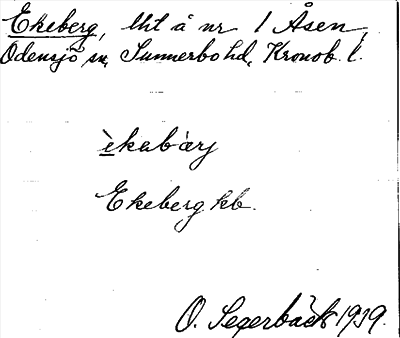 Ekeberg, lht å nr 1 Åsen,
Odensjö sn, Sunnerbo hd, Kronob. l.
èkabàrj
Ekeberg kb.
O. Segerbäck 1939.